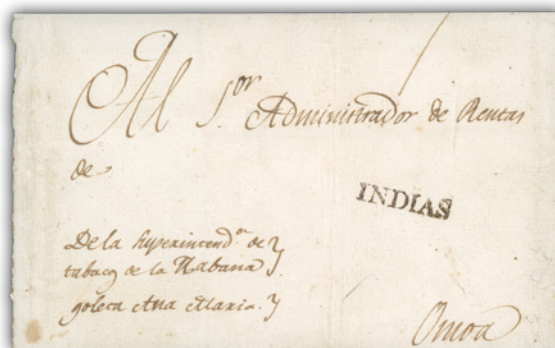 Al S.or Administrador de Rentas
de
INDIAS
De la Superintend.a de
tabacos de la Habana
goleta Ana Maria.
Omoa